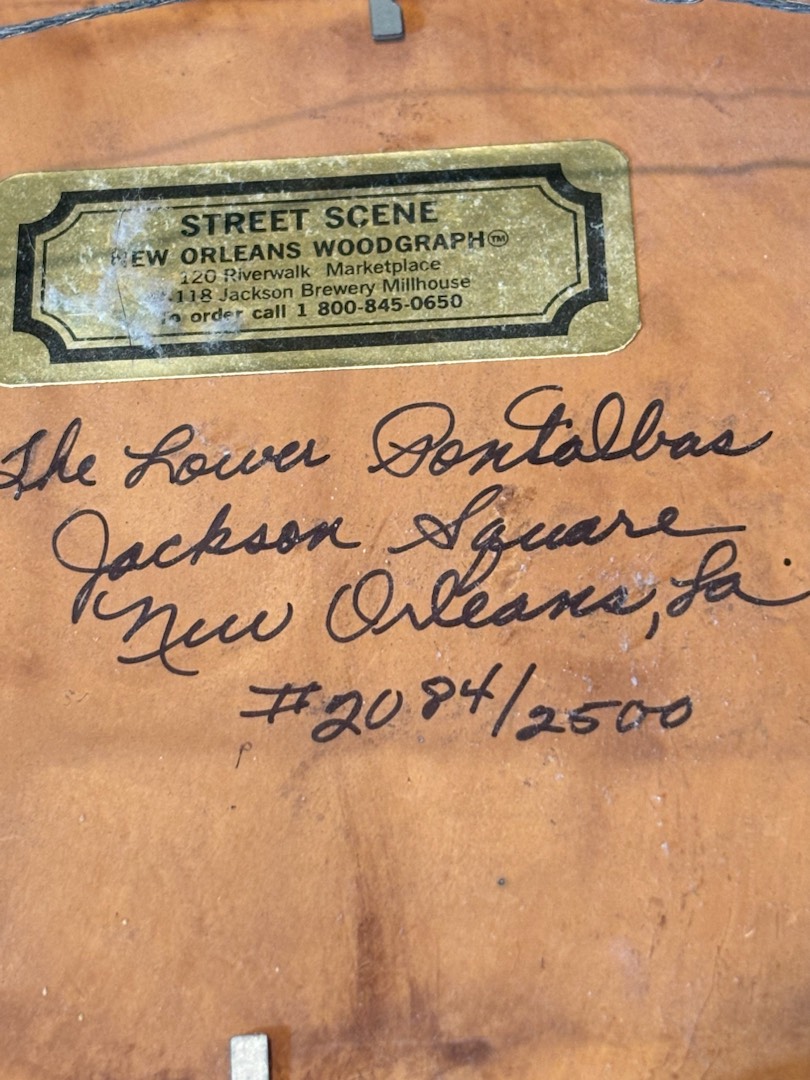 STREET SCENE
NEW ORLEANS WOODGRAPH™
120 Riverwalk Marketplace
118 Jackson Brewery Millhouse
To order call 1 800-845-0650
The Lower Pontalbas
Jackson Square
New Orleans, La.
#2084/2500